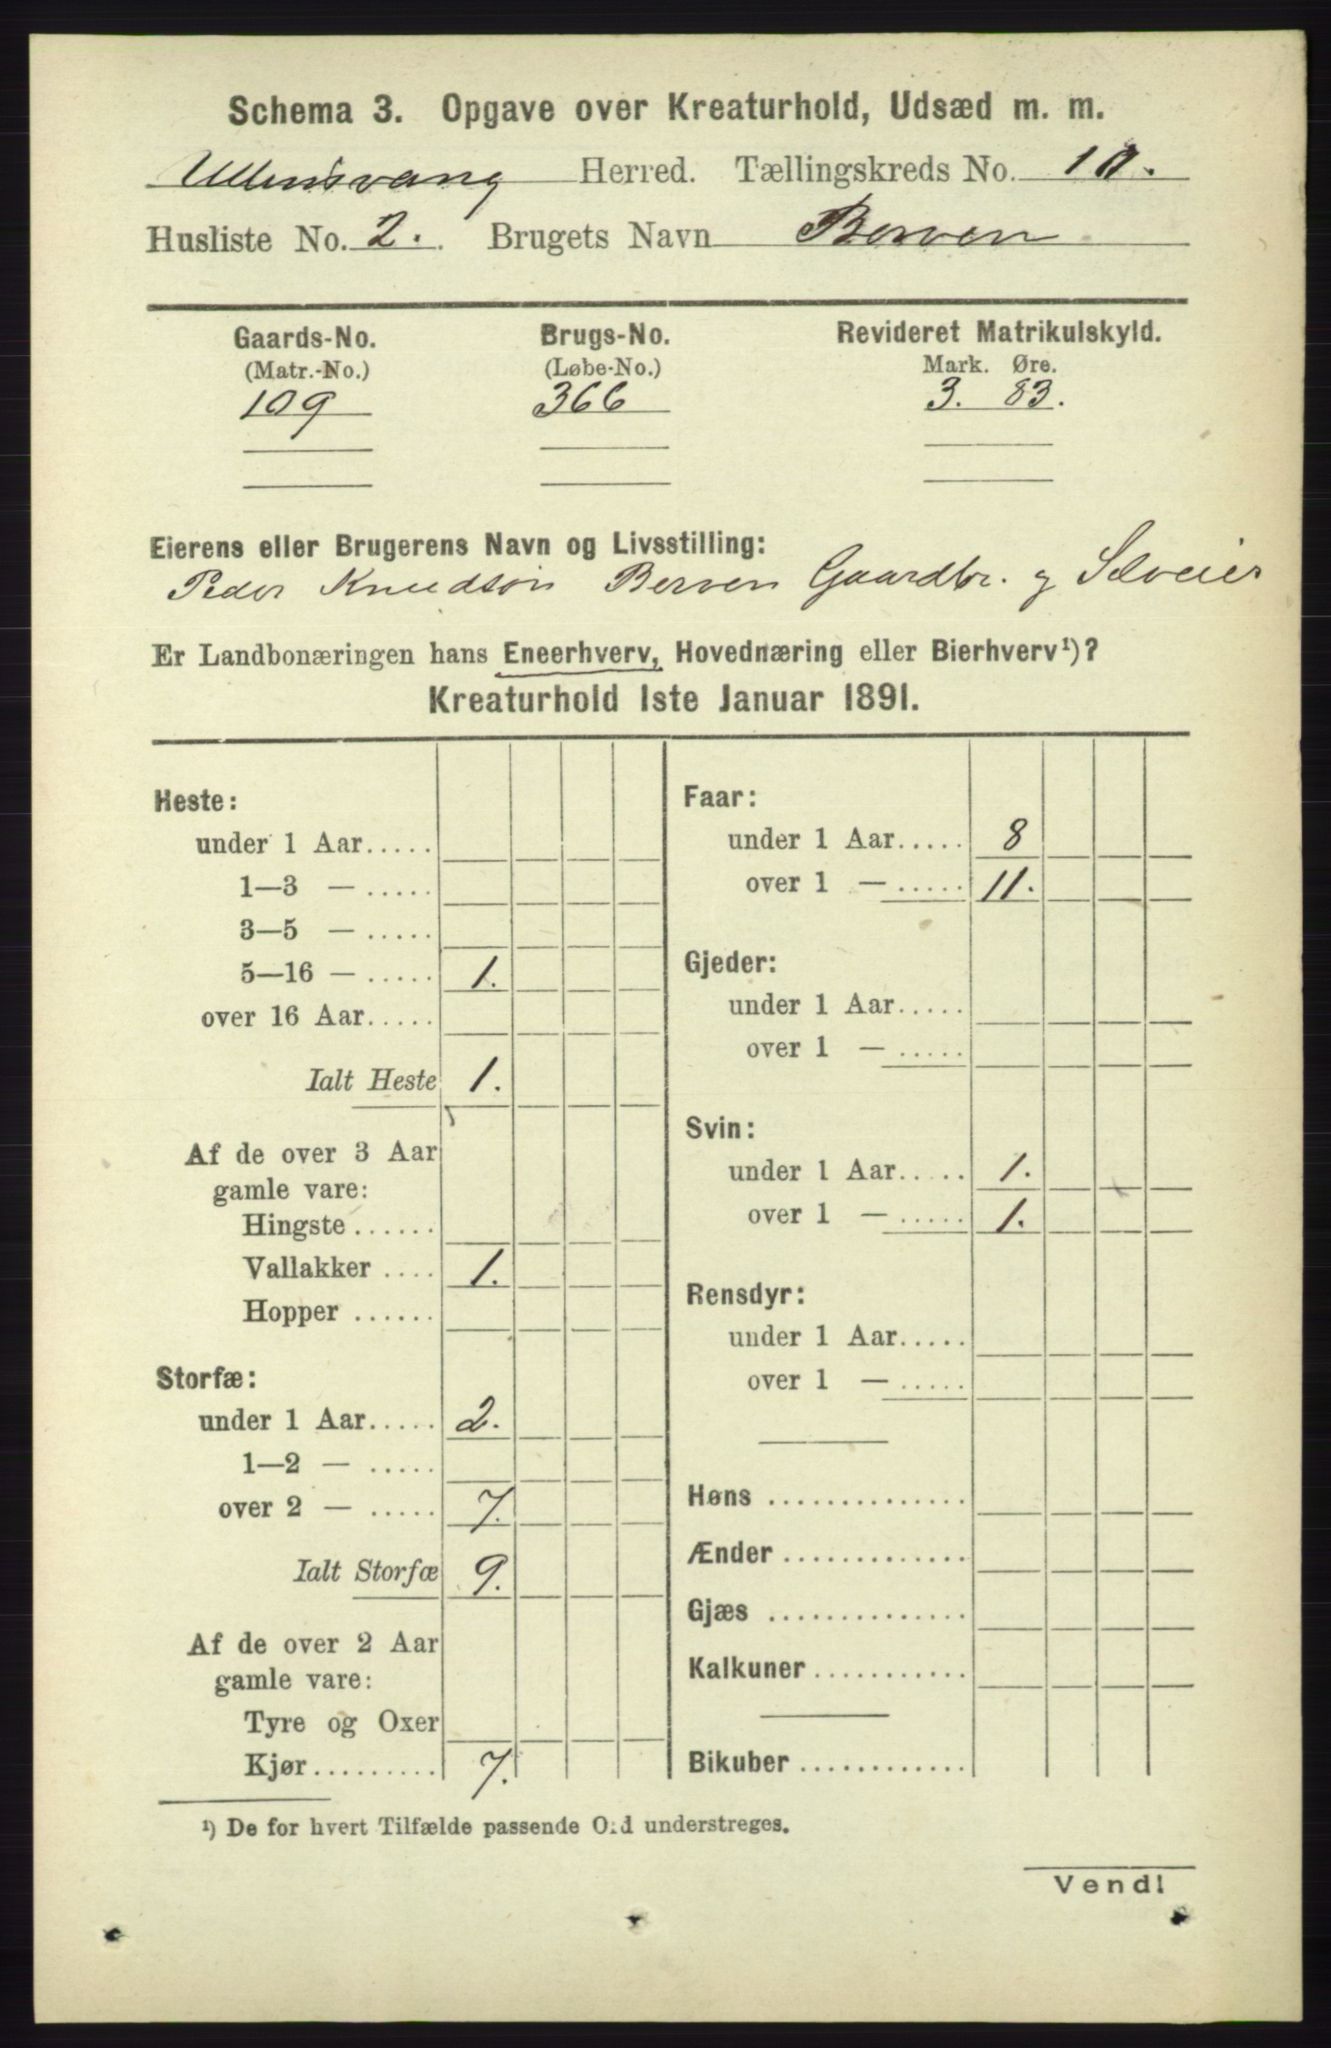 Schema 3. Opgave over Kreaturhold, Udsæd m. m.
Ullensvang Herred. Tællingskreds No.
Husliste No. 2. Brugets Navn Berven
Gaards-No. Brugs-No. Revideret Matrikulskyld.
(Matr.-No.) (Løbe-No.) Mark. Øre.
109 366 3. 83.
Eierens eller Brugerens Navn og Livsstilling:
Peder Knudsøn Berven Gaardbr. og Selveier
Er Landbonæringen hans Eneerhverv, Hovednæring eller Bierhverv¹)?
Kreaturhold 1ste Januar 1891.
Heste:
under 1 Aar.....
1—3 — .....
3—5 — .....
5—16 — ..... 1.
over 16 Aar.....
Ialt Heste 1.
Af de over 3 Aar
gamle vare:
Hingste ......
Vallakker .... 1.
Hopper ......
Storfæ:
under 1 Aar..... 2.
1—2 — .....
over 2 — ..... 7.
Ialt Storfæ 9.
Af de over 2 Aar
gamle vare:
Tyre og Oxer
Kjør......... 7.
Faar:
under 1 Aar..... 8
over 1 — ..... 11.
Gjeder:
under 1 Aar.....
over 1 — .....
Svin:
under 1 Aar..... 1.
over 1 — ..... 1.
Rensdyr:
under 1 Aar.....
over 1 — .....
Høns ..............
Ænder .............
Gjæs ..............
Kalkuner ...........
Bikuber ............
¹) De for hvert Tilfælde passende Ord understreges.
Vend!